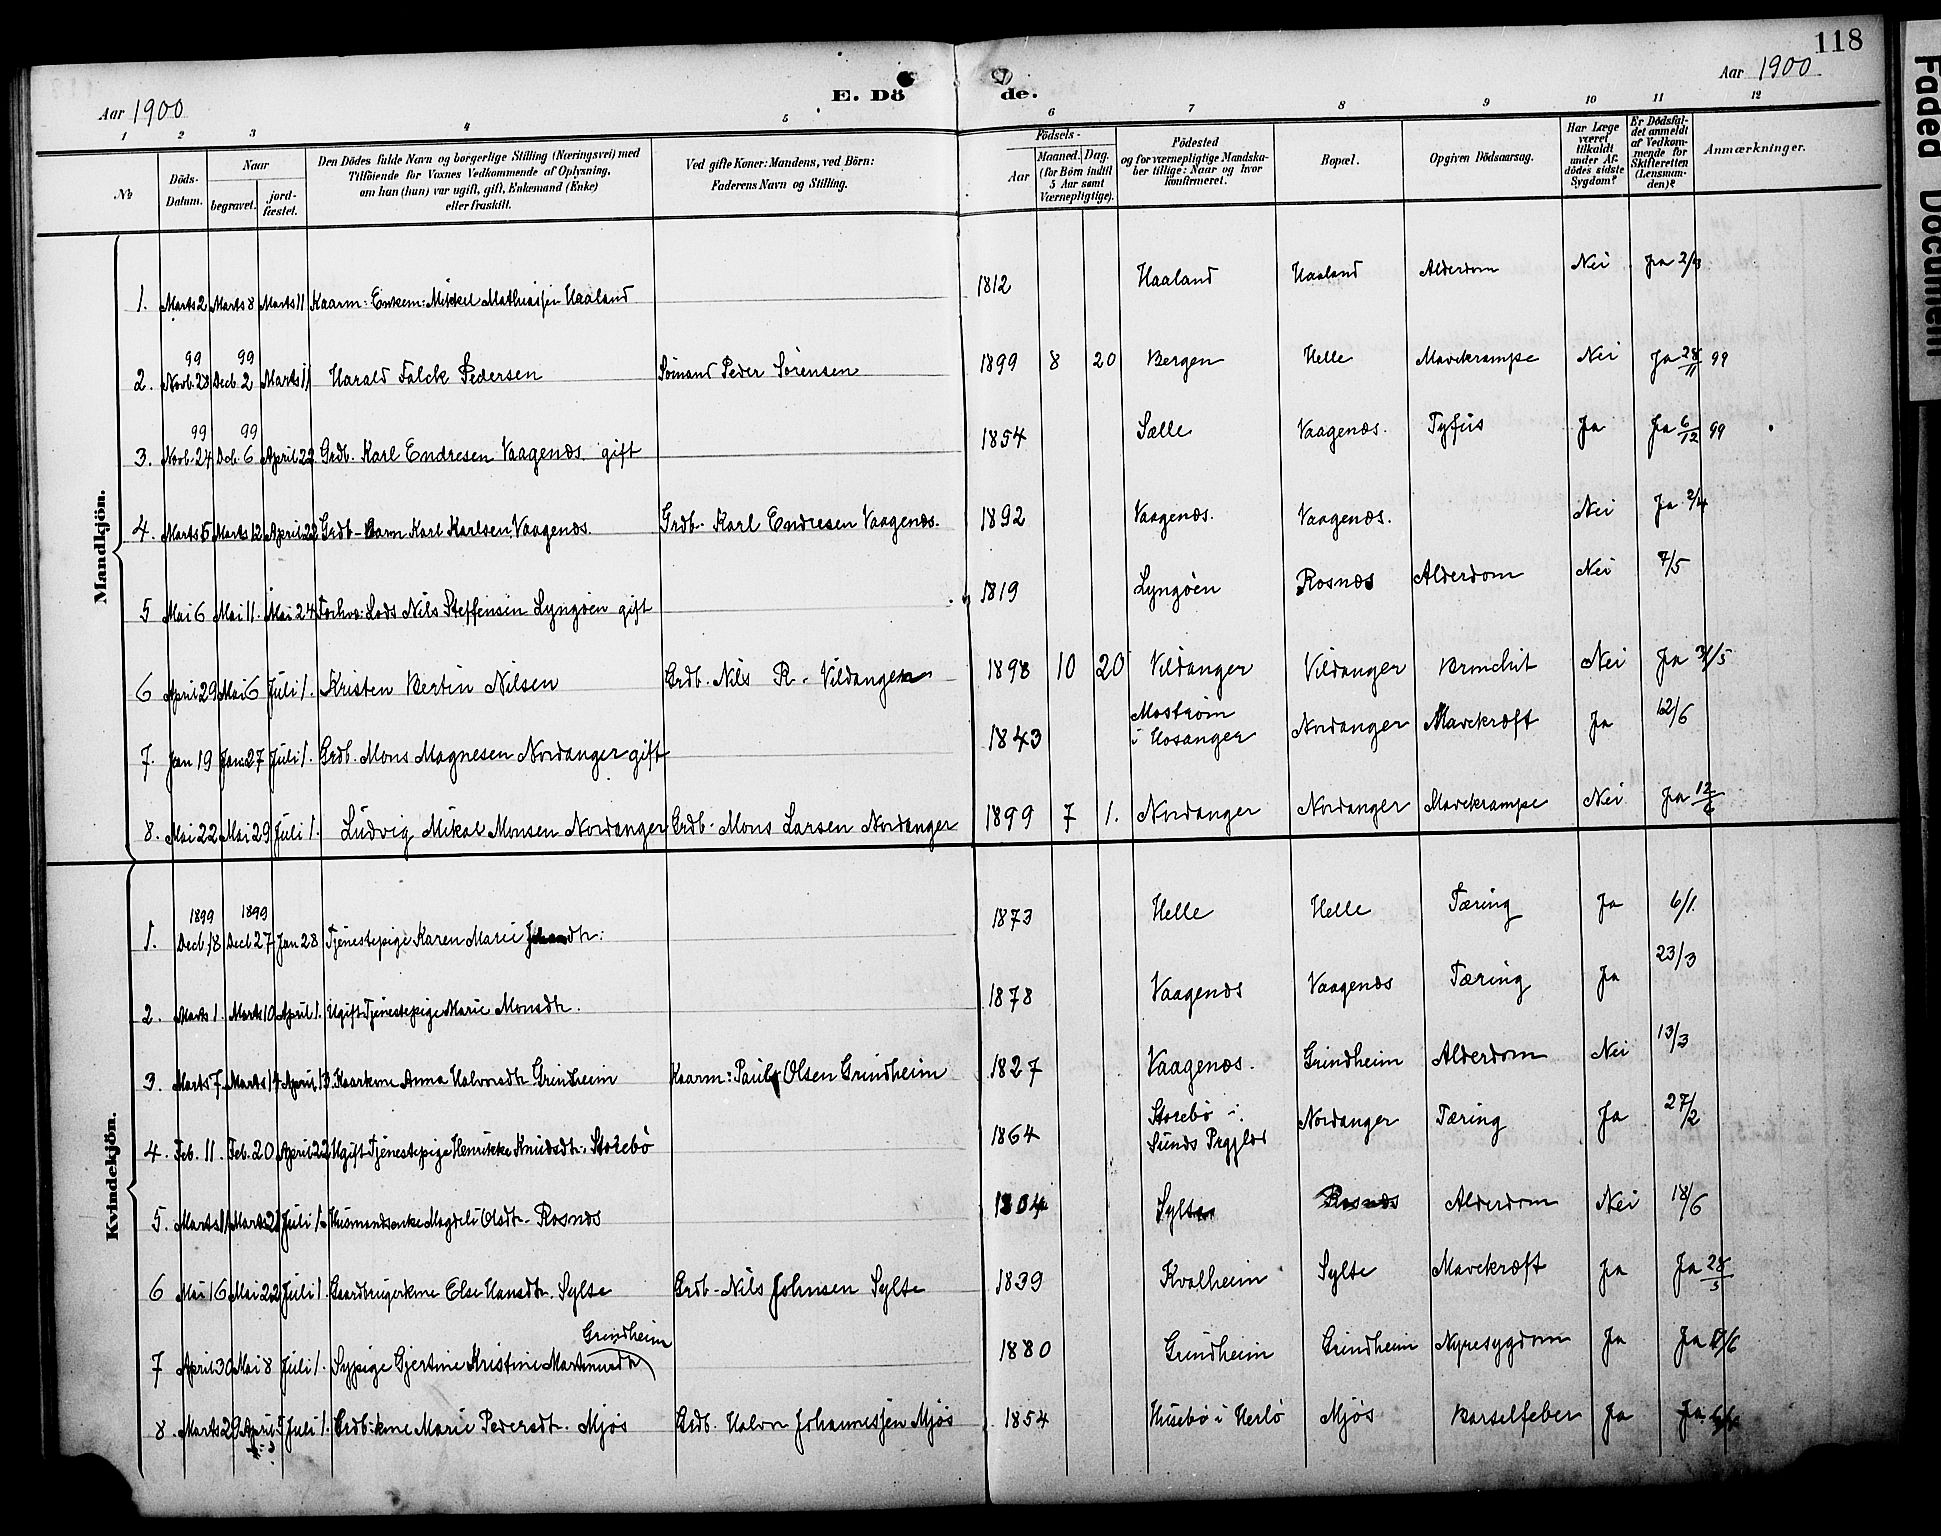 118
Aar 1900
E. Dö de.
Aar 1900
1 2 3 4 5 6 7 8 9 10 11 12
№
Döds-Datum.
Naar
begravet.
jord-fæstet.
Den Dödes fulde Navn og borgerlige Stilling (Næringsvei) med
Tilföiende for Voxnes Vedkommende af Oplysning,
om han (hun) var ugift, gift, Enkemand (Enke)
eller fraskilt.
Ved gifte Koner: Mandens, ved Börn:
Faderens Navn og Stilling.
Födsels-
Aar
Maaned. Dag.
(for Börn indtil
5 Aar samt
Værnepligtige).
Födested
og for værnepligtige Mandska-
ber tillige: Naar og hvor
konfirmeret.
Bopæl.
Opgiven Dödsaarsag.
Har Læge
været
tilkaldt
under Af-
dödes sidste
Sygdom?
Er Dödsfal-
det anmeldt
af Vedkom-
mende for
Skifteretten
(Lensman-
den)?
Anmærkninger.
Mandkjön.
1. Marts 2 Marts 8 Marts 11 Kaarm: Enkem: Mikkel Mathiasjen Haaland 1812 Haaland Haaland Alderdom Nei Ja 2/3
99 99
2. Novb. 28 Decb. 2 Marts 11 Harald Falck Pedersen Sömand Peder Sörensen 1899 8 20 Bergen Helle Mavekrampe Nei Ja 28/11 99
99 99
3. Novb. 24 Dcb. 6 April 22 Grdb. Karl Endresen Vaagenæs gift 1854 Sælle Vaagenæs. Tyfus Ja Ja 6/12 99
4. Marts 5 Marts 12 April 22 Grdb-Barn Karl Karlsen Vaagenæs. Grdb- Karl Endresen Vaagenæs. 1892 Vaagenæs. Vaagenæs. Nei Ja 2/4
5 Mai 6 Mai 11. Mai 24 Forhv: Lods Nils Steffensen Lyngöen gift 1819 Lyngöen Rosnæs Alderdom Nei 7/5
6 April 29 Mai 6 Juli 1. Kristen Bertin Nilsen Grdb. Nils R. Vildanger 1898 10 20 Vildanger Vildanger Bronchit Nei Ja 31/5
7. Jan 19 Jan. 27 Juli 1. Grdb. Mons Magnesen Nordanger gift 1843 Mostrøm
i Hosanger Nordanger Mavekræft Ja 12/6
8. Mai 22 Mai 29 Juli 1. Ludvig Mikal Monsen Nordanger Grdb- Mons Larsen Nordanger 1899 7 1. Nordanger Nordanger Mavekrampe Nei Ja 12/6
Kvindekjön.
1899 1899
1. Decb. 18 Decb 27 Jan 28 Tjenestepige Karen Marie 1873 Helle Helle Tæring Ja 6/1.
2. Marts 1. Marts 10 April 1. Ugift Tjenestepige Marie Monsdtr. 1878 Vaagenæs Vaagenæs Tæring Ja 23/3
3. Marts 7. Marts 14 April 13 Kaarkone Anna Halvorsdtr Grindheim Kaarm: Paul Olsen Grindheim 1827 Vaagenæs. Grindheim Alderdom Nei 13/3
4. Feb. 11. Feb. 20 April 22 Ugift Tjenestepige Henrikke Knudsdtr. Storebö 1864 Storebö i
Sunds Prgjld Nordanger Tæring Ja 27/2
5. Juli 1. Husmandsenke Magdeli Olsdtr. Rosnæs 1804 Sylte Rosnæs Alderdom Nei 18/6
6 Mai 16 Mai 22 Juli 1. Gaardbrugerkone Else Hansdtr. Sylte Grdb- Nils Johnsen Sylte 1839 Kvalheim Sylte Mavekræft Ja Ja 28/5
7 April 30 Mai 8 Juli 1. Sypige Gjertine Kristine Grindheim 1880 Grindheim Grindheim Nyresygdom Ja
8. Marts 29 April 5 Juli 1. Grdb:kone Marie Pedersdt. Mjös Grdb. Halvor Johannesjen Mjös 1854 Husebö i Herlö Mjös Barselfeber Ja Ja
Faded Document